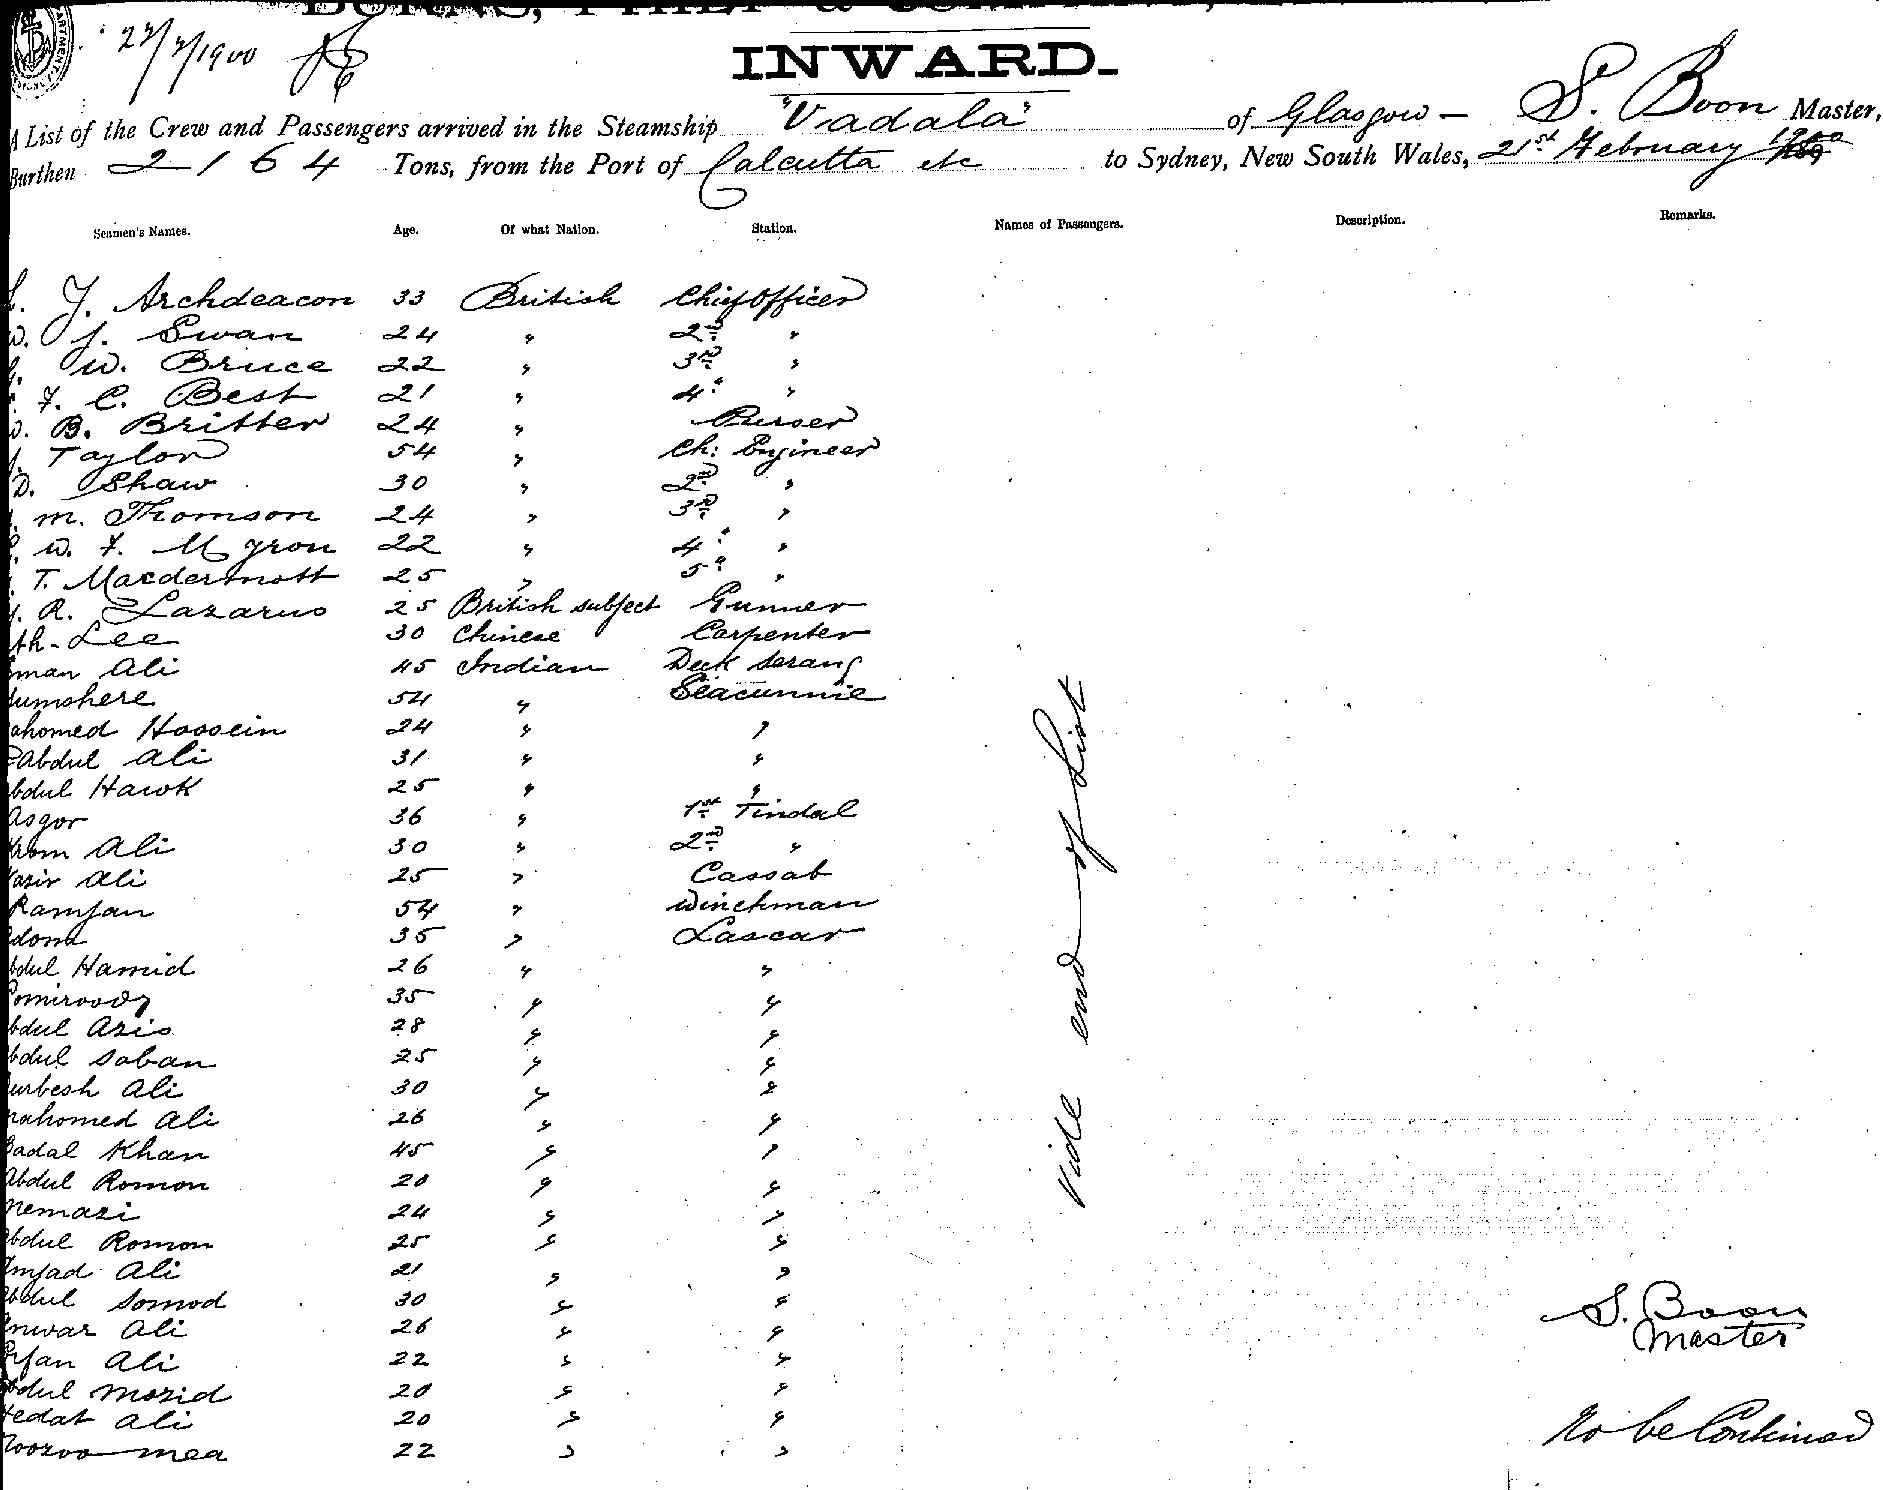 22/2/1900
INWARD.
A List of the Crew and Passengers arrived in the Steamship "Vadala" of Glasgow - S. Boon Master,
Burthen 2164 Tons, from the Port of Calcutta etc to Sydney, New South Wales, 21st February 1900
Seamen's Names. Age. Of what Nation. Station. Names of Passengers. Description. Remarks.
J. Archdeacon 33 British Chief Officer
J. Swan 24 " 2nd "
W. Bruce 22 " 3rd "
F. C. Best 21 " 4" "
B. Britter 24 " Purser
Taylor 54 " Ch: Engineer
D. Shaw 30 " 2nd "
M. Thomson 24 " 3rd "
W. F. Myron 22 " 4" "
T. Macdermott 25 " 5" "
R. Lazarus 25 British subject Gunner
Ah-Lee 30 Chinese Carpenter
man Ali 45 Indian Deck Serang
umshere 54 " Seacunnie
ahomed Hoosein 24 " "
Abdul Ali 31 " "
bdul Hawk 25 " "
Asgor 36 " 1st Tindal
krom Ali 30 " 2nd "
azir Ali 25 " Cassab
Ramjan 54 " Winchman
dona 35 " Lascar
bdul Hamid 26 " "
omiroody 35 " "
bdul Azis 28 " "
bdul Soban 25 " "
urbesh Ali 30 " "
mahomed Ali 26 " "
Badal Khan 45 " "
Abdul Romon 20 " "
nemazi 24 " "
Abdul Romon 25 " "
Amjad Ali 21 " "
Abdul Somod 30 " "
Anwar Ali 26 " "
rfan Ali 22 " "
bdul Mozid 20 " "
Hedat Ali 20 " "
oozoo mea 22 " "
Vide end of List
S. Boon
Master
To be Continued